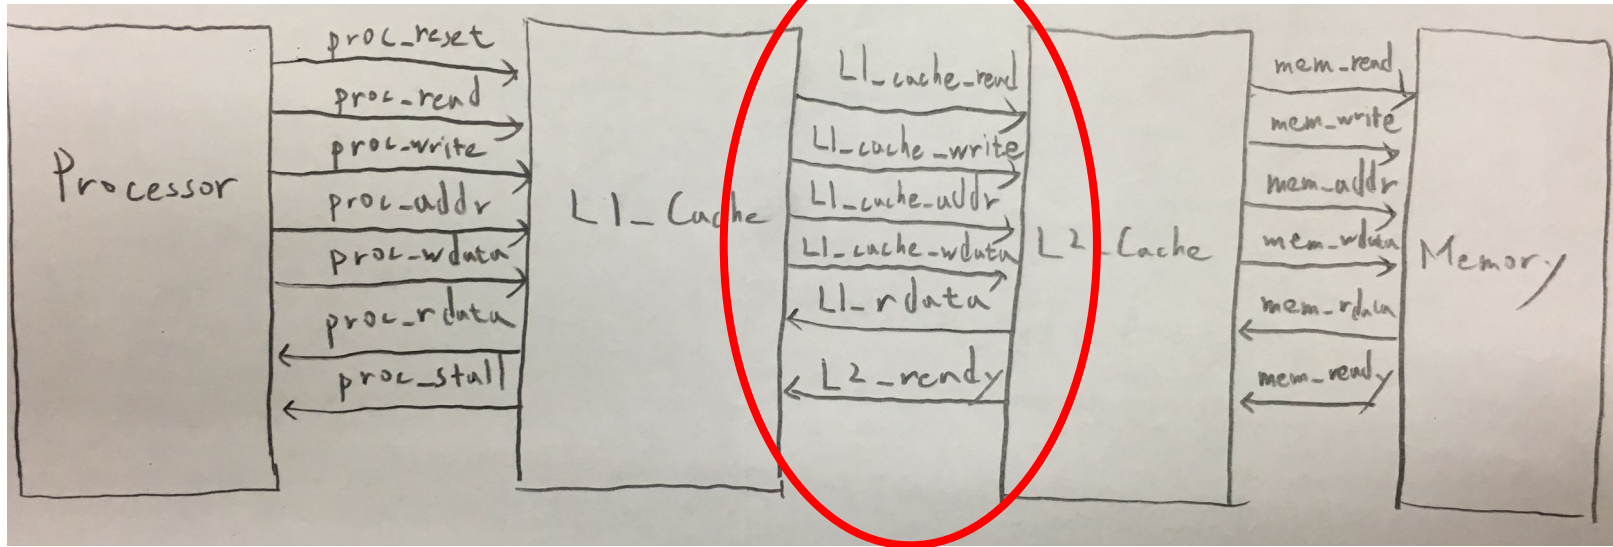 Processor
proc_reset
proc_read
proc_write
proc_addr
proc_wdata
proc_rdata
proc_stall
L1_Cache
L1_cache_read
L1_cache_write
L1_cache_addr
L1_cache_wdata
L1_rdata
L2_ready
L2_Cache
mem_read
mem_write
mem_addr
mem_wdata
mem_rdata
mem_ready
Memory